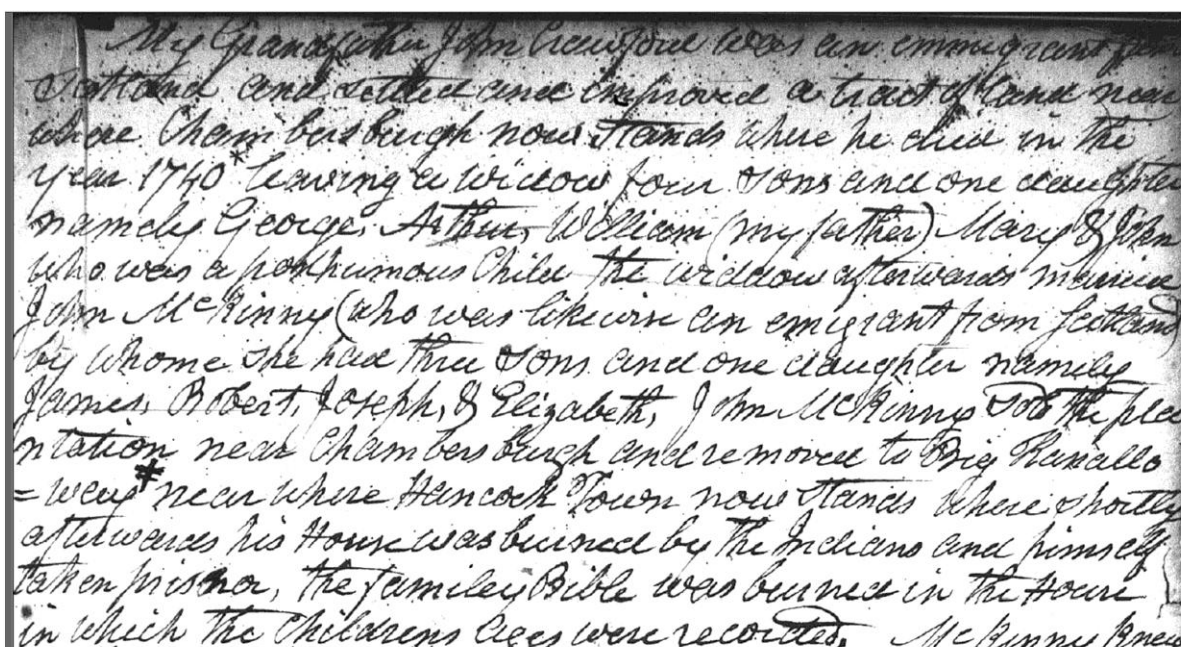 My Grandfather John Crawford was an emmigrant from
Scotland and settled and improved a tract of Land near
whare Chambersburgh now stands where he died in the
year 1740* leaving a widow four sons and one daughter
namely George, Arthur, William (my father) Mary & John
who was a posthumous Child the widdow afterwards married
John McKinny (who was likewise an emigrant from Scotland)
by whome she had three sons and one daughter namely
James, Robert, Joseph, & Elizabeth, John McKinny sold the pla
ntation near Chambersburgh and removed to Big
=ways# near where Hancock Town now stands where shortly
afterwards his House was burned by the Indians and himself
taken prisnor, the familey Bible was burned in the House
in which the Childrens ages were recorded. McKinny knew